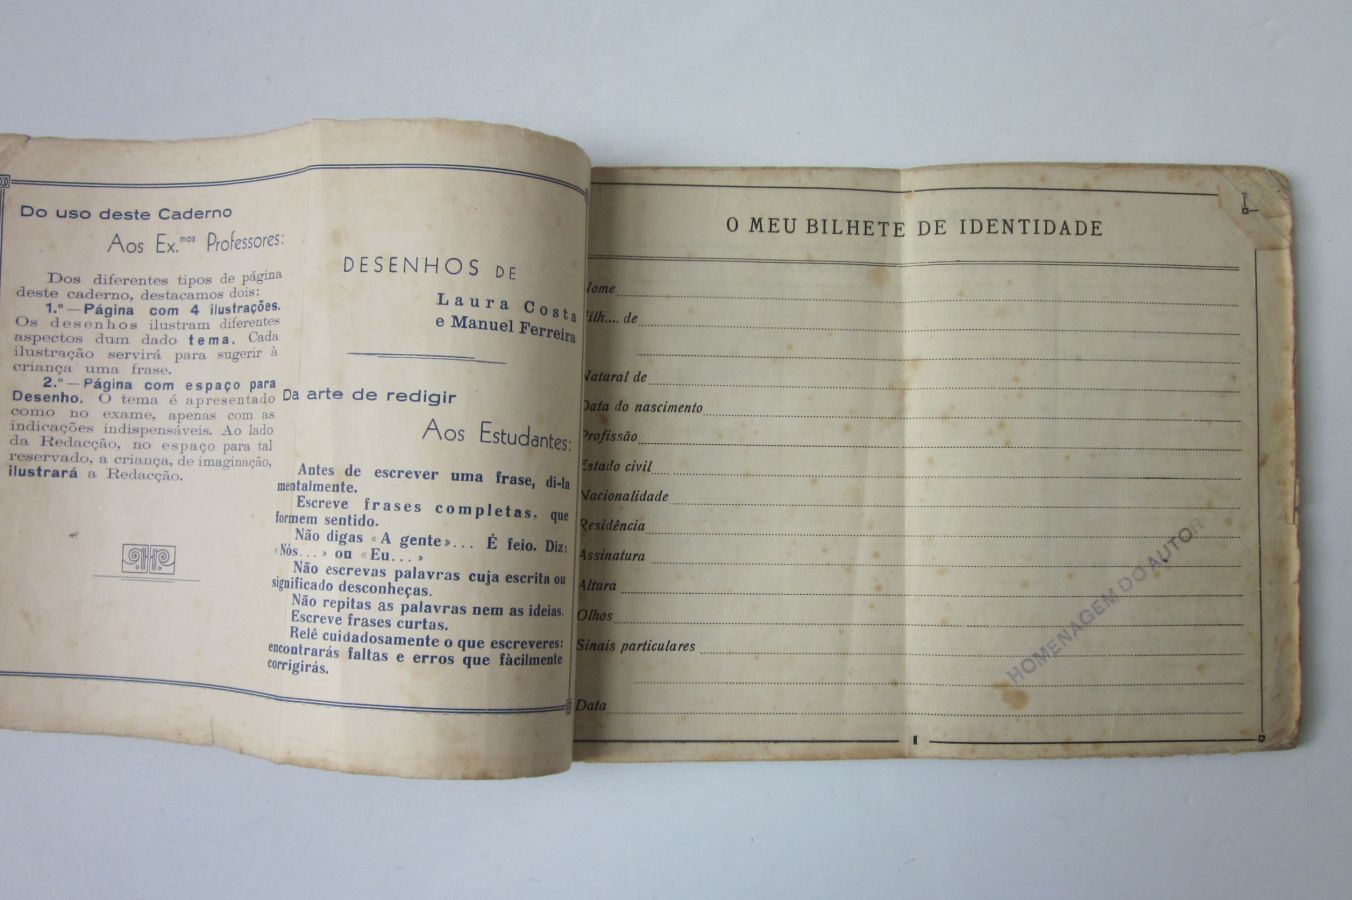 Do uso deste Caderno
Aos Ex.mos Professores:
Dos diferentes tipos de página
deste caderno, destacamos dois:
1.º — Página com 4 ilustrações.
Os desenhos ilustram diferentes
aspectos dum dado tema. Cada
ilustração servirá para sugerir à
criança uma frase.
2.º — Página com espaço para
Desenho. O tema é apresentado
como no exame, apenas com as
indicações indispensáveis. Ao lado
da Redacção, no espaço para tal
reservado, a criança, de imaginação,
ilustrará a Redacção.
DESENHOS DE
Laura Costa
e Manuel Ferreira
Da arte de redigir
Aos Estudantes:
Antes de escrever uma frase, di-la
mentalmente.
Escreve frases completas, que
formem sentido.
Não digas «A gente»... É feio. Diz:
«Nós...» ou «Eu...»
Não escrevas palavras cuja escrita ou
significado desconheças.
Não repitas as palavras nem as ideias.
Escreve frases curtas.
Relê cuidadosamente o que escreveres:
encontrarás faltas e erros que fàcilmente
corrigirás.
O MEU BILHETE DE IDENTIDADE
Nome
Filh.... de
Natural de
Data do nascimento
Profissão
Estado civil
Nacionalidade
Residência
Assinatura
Altura
Olhos
Sinais particulares
Data
HOMENAGEM DO AUTOR
1